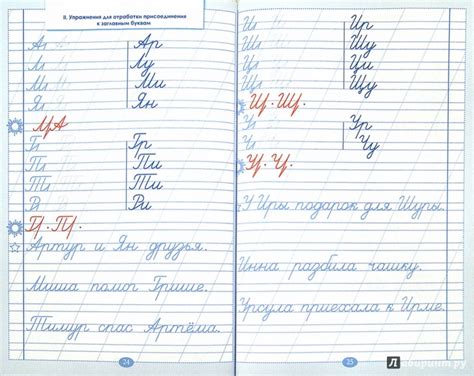 II. Упражнения для отработки присоединения
к заглавным буквам
Аι Ар
Лι Лу
Мι Ми
Яι Ян
Гι Гр
Пι Пи
Тι Ти
Вι Ви
Артур и Ян друзья.
Миша помог Грише.
Тимур спас Артёма.
24
Иι Ир
Шι Шу
Цι Ци
Щι Щу
Уι Ур
Чι Чу
У Иры подарок для Шуры.
Инна разбила чашку.
Урсула приехала к Ирме.
25
Лабиринт.ру